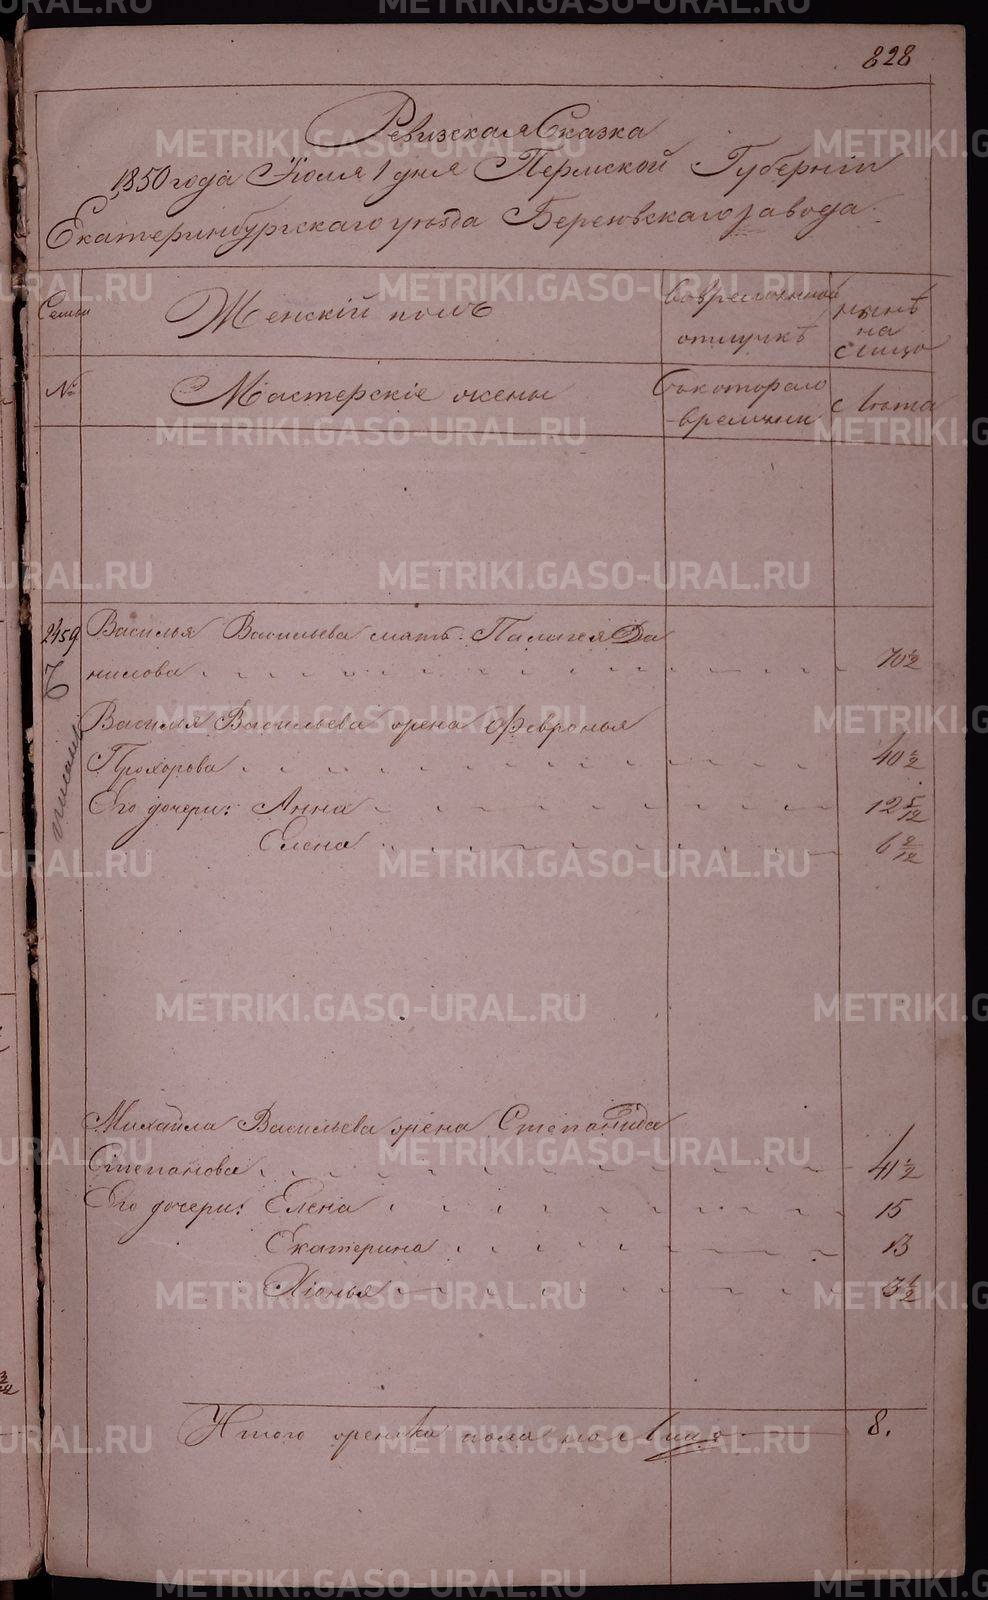 828
Ревизская Сказка
1850 года Июля 1 дня Пермской Губернiи
Екатеринбургскаго уѣзда Березовскаго завода.
Семьи
Женскiй полъ
Во временной отлучкѣ
нынѣ на лицо
№
Мастерскiе жены
Съ котораго времяни
Лѣта
2459
Василья Васильева мать Палагея Да
нилова 70 1/2
Василья Васильева жена Февронья
Прохорова 40 1/2
Его дочери: Анна 12 5/12
Елена 6 2/12
Михайла Васильева жена Степанида
Степанова 41 1/2
Его дочери: Елена 15
Екатерина 13
Хiонья 3 1/2
Итого женска пола на лицо 8.
METRIKI.GASO-URAL.RU